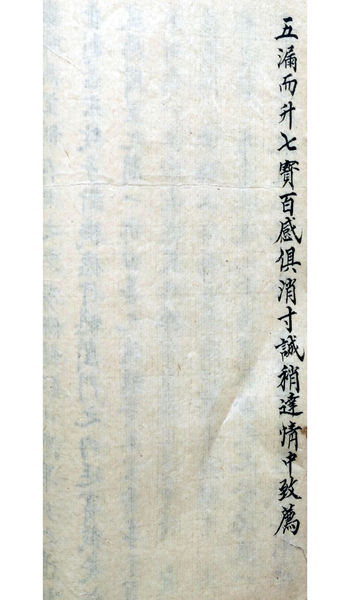 五漏而升七寳百感俱消寸誠稍達情中致薦